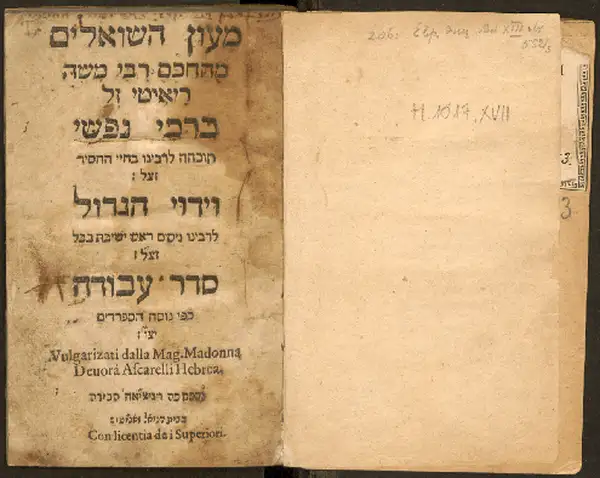 מעון השואלים
מהחכם רבי משה
ריאיטי זל
ברכי נפשי
תוכחה לרבינו בחיי החסיד
זצל :
וידוי הגדול
לרבינו ניסים ראש ישיבת בבל
זצל :
סדר עבודה
כפי נוסח הספרדים
יצו :
Vulgarizati dalla Mag. Madonna
Deuora Ascarelli Hebrea.
Con licentia de i Superiori.
H. 1017. XVII
3